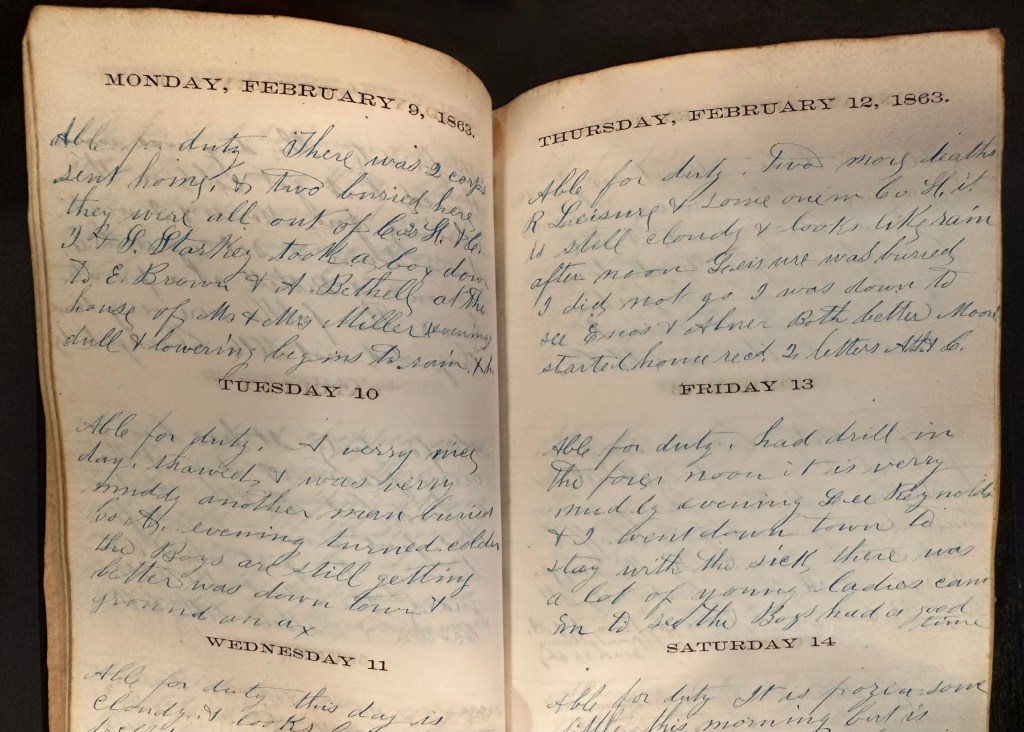 MONDAY, FEBRUARY 9, 1863.
Able for duty There was 2 corps
sent home, & two buried here
they were all out of Co's H. & G.
I & S. Starkey took a box down
to E. Brown & A. Bethell at the
house of Mr & Mrs Miller evening
dull & lowering begins to rain. &
TUESDAY 10
Able for duty. A verry nice
day, thawed, & was verry
muddy another man buried
Co A, evening turned colder
the Boys are still getting
better was down town &
ground an ax
WEDNESDAY 11
Able for duty this day is
cloudy & looks
THURSDAY, FEBRUARY 12, 1863.
Able for duty. Two more deaths
R Leisure & some one in Co H. it
is still cloudy & looks like rain
after noon Leisure was buried
I did not go I was down to
see Enos & Abner Both better Moore
started home recd. 2 letters & C.
FRIDAY 13
Able for duty, had drill in
the fore noon it is verry
muddy evening Lee Reynolds
& I went down town to
stay with the sick, there was
a lot of young ladies came
in to see the Boys had a good
time
SATURDAY 14
Able for duty It is frozen some
this morning but is